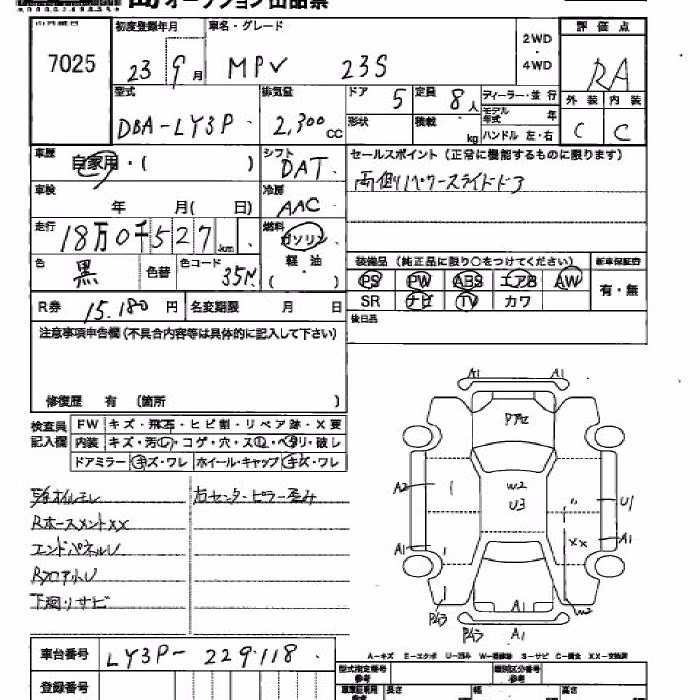 オークション出品票
出品番号 初度登録年月 車名・グレード 2WD・4WD 評価点
7025 23 9月 MPV 23S RA
型式 排気量 ドア 5 定員 8人 ディーラー・並行 外装 内装
DBA-LY3P 2,300cc 形状 積載 kg モデル年式 年 C C
ハンドル 左・右
車歴 自家用・( ) シフト DAT セールスポイント (正常に機能するものに限ります)
車検 年 月( 日) 冷房 AAC 両側パワースライドドア
走行 18万0千527km 燃料 ガソリン 軽油 ( )
色 黒 色替 色コード 35N 装備品 (純正品に限り○をつけてください) 新車保証書
PS PW ABS エアB AW 有・無
R券 15.180円 名変期限 月 日 SR ナビ TV カワ
後日品
注意事項申告欄(不具合内容等は具体的に記入して下さい)
修復歴 有 (箇所 )
検査員記入欄 FW キズ・飛石・ヒビ割・リペア跡・X要
内装 キズ・汚レ・コゲ・穴・スレ・ヘタリ・破レ
ドアミラー キズ・ワレ ホイール・キャップ キズ・ワレ
右センターピラー歪み
RホースメントXX
エンドパネルU
RフロアトレU
下廻りサビ
A1 A1
Pアセ
W2
U3
A2 U1
XX
A1 A1
W2
P43 A1
P43 A1
車台番号 LY3P-229118
A-キズ E-エクボ U-凹み W-補修跡 S-サビ C-腐食 XX-交換済
登録番号 型式指定番号 参考 類別区分番号 参考
長さ 幅 高さ